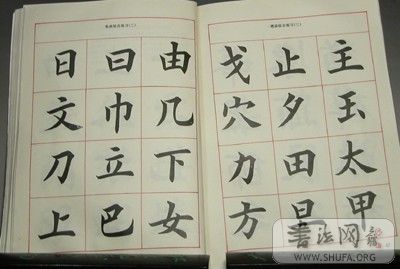 日 曰 由
文 巾 几
刀 立 下
上 巴 女
戈 止 主
穴 夕 玉
力 田 太
方 甲
書法网
WWW.SHUFA.ORG